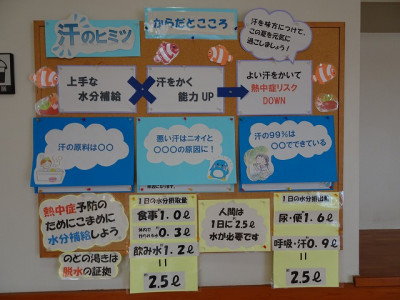 汗のヒミツ
からだとこころ
汗を味方につけて、
この夏を元気に
過ごしましょう！
上手な
水分補給
×
汗をかく
能力UP
よい汗をかいて
熱中症リスク
DOWN
汗の原料は〇〇
悪い汗はニオイと
〇〇〇の原因に！
汗の99%は
〇〇でできている
熱中症予防の
ためにこまめに
水分補給しよう
のどの渇きは
脱水の証拠
1日の水分摂取量
食事1.0ℓ
0.3ℓ
飲み水1.2ℓ
=
2.5ℓ
人間は
1日に2.5ℓ
水が必要です
1日の水分排出量
尿・便1.6ℓ
呼吸・汗0.9ℓ
=
2.5ℓ